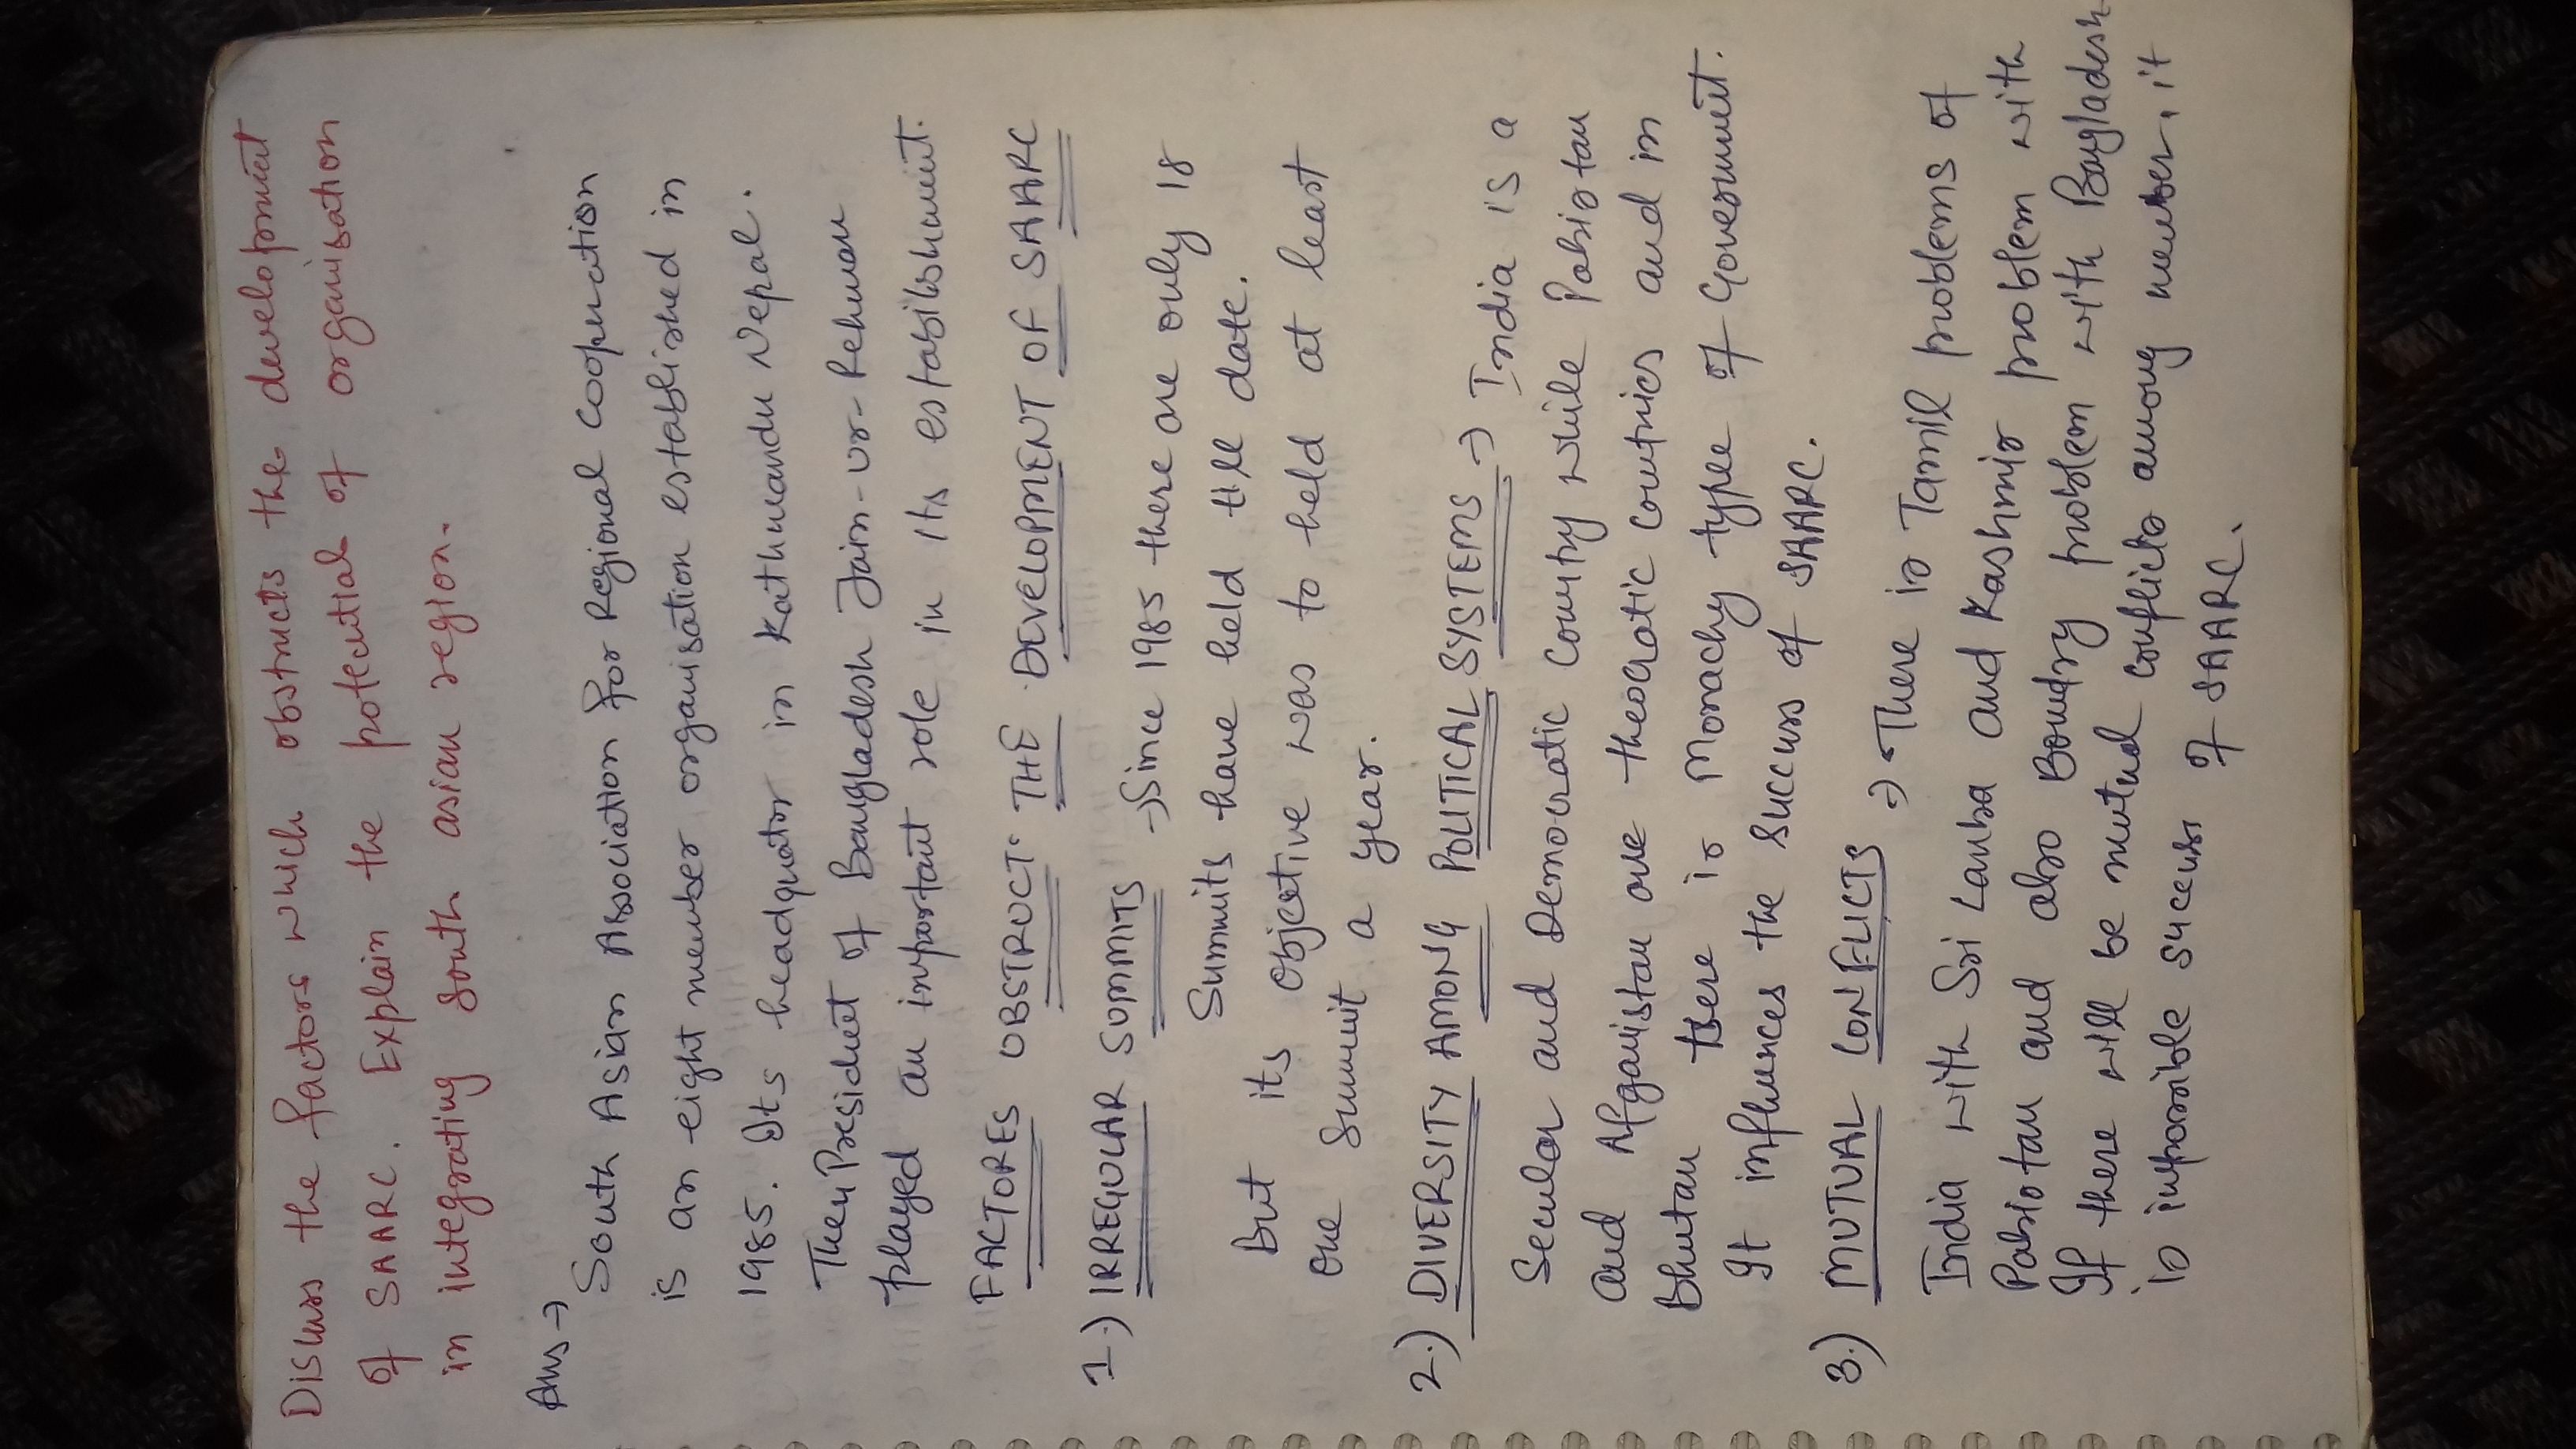 Discuss the factors which obstructs the development
of SAARC. Explain the potential of organisation
in integrating south asian region.
Ans →
South Asian Association for Regional Cooperation
is an eight member organisation established in
1985. Its headquator in Kathmandu Nepal.
Then President of Bangladesh Jain-ur-Rehman
played an important role in its establishment.
FACTORES OBSTRUCT THE DEVELOPMENT OF SAARC
1.) IRREGULAR SUMMITS → Since 1985 there are only 18
Summits have held till date.
But its objective was to held at least
one Summit a year.
2.) DIVERSITY AMONG POLITICAL SYSTEMS → India is a
Secular and Democratic Country while Pakistan
and Afganistan are theocratic countries and in
Bhutan there is Monachy type of Government.
It influences the success of SAARC.
3.) MUTUAL CONFLICTS → There is Tamil problems of
India with Sri Lanka and Kashmir problem with
Pakistan and also Boundry problem with Bangladesh
If there will be mutual conflicts among member, it
is impossible success of SAARC.